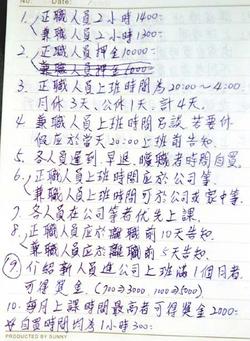 NO. Date
1. 正職人員2小時1400=
兼職人員2小時1300=
2. 正職人員押金10000=
兼職人員押金6000=
3. 正職人員上班時間為20:00~4:00
月休3天、公休1天、計4天。
4. 兼職人員上班時間另談、若要休
假應於當天20:00上班前告知
5. 各人員遲到、早退、曠職者時間自買。
6. 正職人員上班時間應於公司等.
兼職人員上班時間可於公司或家中等.
7. 各人員在公司等者優先上課.
8. 正職人員應於離職前10天告知.
兼職人員應於離職前5天告知.
⑨ 介紹新人員進公司上班滿1個月者.
可得獎金
10. 每月上課時間最高者可得獎金2000=
自買時間均為1小時300=
PRODUCED BY SUNNY